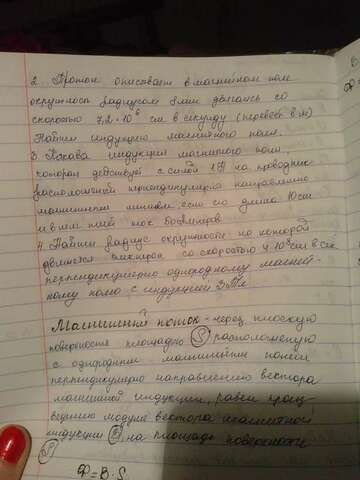 2. Протон описывает в магнитном поле
окружность радиусом 8 мм двигаясь со
скоростью 7,2·10⁶ см в секунду (перевести в м)
Найти индукцию магнитного поля.
3. Какова индукция магнитного поля,
которая действует с силой 1Н на проводник
расположеный перпендикулярно направлению
магнитным линиям, если его длина 10см
и в нём течёт ток 50 амперов.
4. Найти радиус окружности по которой
движется электрон со скоростью 4·10⁸см в сек
перпендикулярно однородному магнит-
ному полю с индукцией 3мТл
Магнитный поток - через плоскую
поверхность площадью (S) расположеную
с однородным магнитным полем
перпендикулярно направлению вектора
магнитной индукции, равен произ-
ведению модуля вектора магнитной
индукции (B) на площадь поверхности
(S)
Ф=B·S
В
Ф=